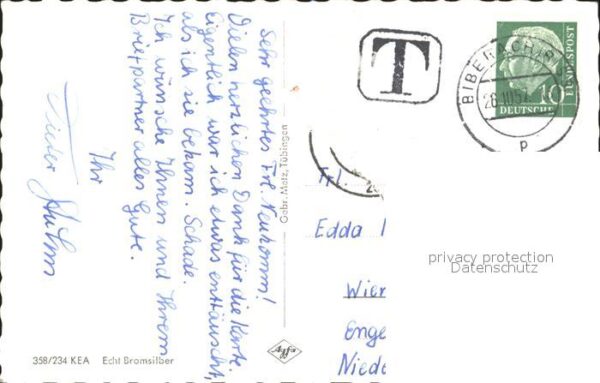 Sehr geehrtes Frl. Neukomm!
Vielen herzlichen Dank für die Karte.
Eigentlich war ich etwas enttäuscht,
als ich sie bekam. Schade.
Ich wünsche Ihnen und Ihrem
Briefpartner alles Gute.
Ihr
Dieter
Gebr. Metz, Tübingen
358/234 KEA Echt Bromsilber
Agfa
T
BIBERACH
P
10
DEUTSCHE
BUNDESPOST
Frl.
Edda
Wien
Enge
Niede
privacy protection
Datenschutz